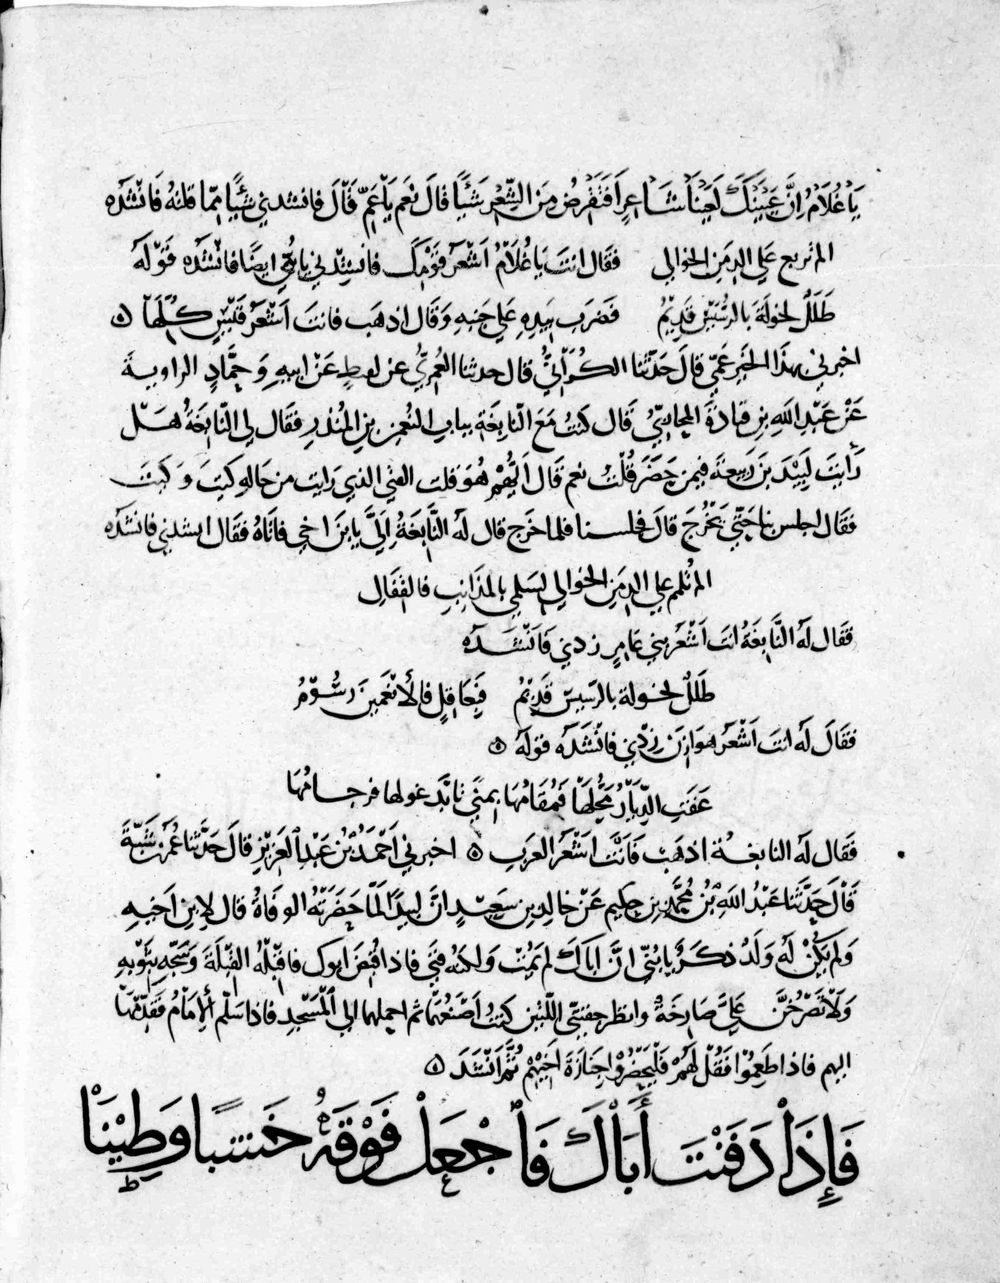 يَا غُلَامُ اِنَّ عَيْنَيْكَ لَعَيْنَا شَاعِرٍ اَفَتَقْرِضُ مِنَ الشِّعْرِ شَيْئًا قَالَ نَعَم يَا عَمِّ قَالَ فانشدني شَيْئًا مِمَّا قلتَهُ فَانْشَدَه
الم تربع علي الدِمَنِ الخوالي فَقَال انتَ يَا غُلَامُ اَشْعَرُ قَوْمِكَ فانشِدْني يا بُنَيَّ ايضًا فانْشَدَه قَوْلَه
طَلَلٌ لخولَةَ بالرُّسَيْسِ قَدِيمُ فَضَرب بيَدِهِ عَلي جَنبِهِ وَقَال اذهَب فانتَ اَشْعَرُ قَيْسٍ كُلِّهَا ه
اخبرني بهذَا الخَبَرِ عَمِّي قالَ حَدَّثَنا الكُرَانيُّ قال حدثنا العُمَرِيُّ عن لقيطٍ عَنْ ابيهِ وَحَمَّادٍ الراوية
عَنْ عَبْدِ اللهِ بنِ قتادةَ المحاربيِّ قَال كنتُ مَعَ النّابِغَةِ ببابِ النعمن بنِ المُنذرِ فقَال لي النَّابغَةُ هَلْ
رَأيتَ لَبِيْدَ بنَ رَبيعةَ فيمن حَضَرَ قُلْتُ نعم قَالَ اَيُّهُم هُوَ قلت الفتي الذي رَايت من حَالِهِ كَيتَ وَكَيتَ
فقَال اجلس بنا حَتّي يَخْرُجَ قالَ فجلسنا فلما خرَج قال لَه النَّابِغَةُ اِلَيَّ يا بنَ اخي فاتَاهُ فقَال انشدني فانشدَه
الم تُلمم علي الدِمَنِ الخوالي لِسَلمي بالمذَانِبِ فالقفَالِ
فقَال لَه النَّابِغَةُ انتَ اَشْعَرُ بني عَامِرٍ زدني فَانْشَدَه
طَلَلٌ لخولة بالرسيسِ قَدِيْمُ فبِعَاقِلٍ فالانعَمَيْنِ رُسُوْمُ
فقَالَ لَه انتَ اَشْعَرُ هَوَازِنَ زِدْني فانْشَدَه قولَه ه
عَفَتِ الدِّيَارُ مَحَلُّهَا فَمُقَامُهَا بِمنًي تأبَّدَ غولها فرجامُهَا
فَقَال لَه النابغةُ اذهَبْ فَاَنْتَ اشْعَرُ العَربِ ه اخبرني اَحْمَدُ بْنُ عَبْدِ العَزيزِ قالَ حَدَّثَنَا عُمَرُ بْنُ شَبَّةَ
قَالَ حَدَّثَنا عَبْدُ اللهِ بْنُ مُحَمَّدِ بنِ حكيم عَنْ خَالِدِ بنِ سَعِيْدٍ اَنَّ لَبِيْدًا لَمَّا حَضَرَتْهُ الوَفَاةُ قال لابنِ اَخيهِ
وَلَم يَكُنْ لَه وَلَدٌ ذكَرٌ يا بُنَيَّ اِنَّ اباك لم يَمُتْ ولكنه فَنِيَ فاذا قُبِضَ ابوك فاَقبِلْهُ القِبْلَةَ وَسَجِّهِ بِثَوْبِهِ
وَلَا تَصْرُخَنَّ عَلَيَّ صَارِخَةٌ وانظر جفنتيَّ اللَّتَيْنِ كنتُ اَصْنَعُهَما ثم احملهما الي المَسْجِدِ فاذا سَلَّمَ الاِمَامُ فَقَدِّمْهَا
اليهم فاذا طَعِمُوا فَقُلْ لَهُمْ فَلْيَحْضُرُوْا جنَازَةَ اَخِيْهِمْ ثُمَّ اَنْشَدَ ه
فَإِذَا دَفَنْتَ أَبَاكَ فَاجْعَلْ فَوْقَهُ خَشَبًا وَطِيْنَا